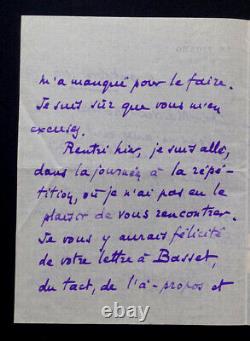 m'a manqué pour le faire.
Je suis sûr que vous m'en
excusez.
Rentré hier, je suis allé,
dans la journée à la répé-
tition, où je n'ai pas eu le
plaisir de vous rencontrer.
Je vous y aurais félicité
de votre lettre à Basset,
du tact, de l'à-propos et